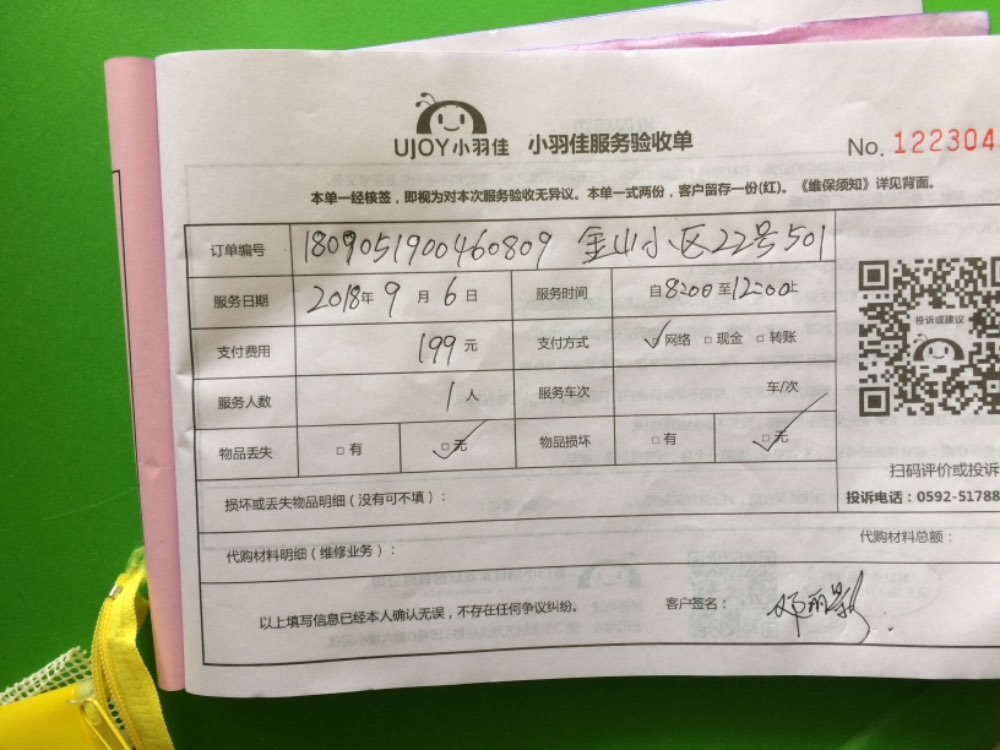 UJOY小羽佳 小羽佳服务验收单 No. 122304
本单一经核签，即视为对本次服务验收无异议。本单一式两份，客户留存一份(红)。《维保须知》详见背面。
订单编号 1809051900460809 金山小区22号501
服务日期 2018年9月6日 服务时间 自8:00至12:00止
支付费用 199元 支付方式 ☑网络 □现金 □转账
服务人数 1人 服务车次 车/次
物品丢失 □有 ☑无 物品损坏 □有 ☑无
投诉或建议
扫码评价或投诉
投诉电话：0592-51788
损坏或丢失物品明细（没有可不填）：
代购材料明细（维修业务）： 代购材料总额：
以上填写信息已经本人确认无误，不存在任何争议纠纷。 客户签名：邓丽影